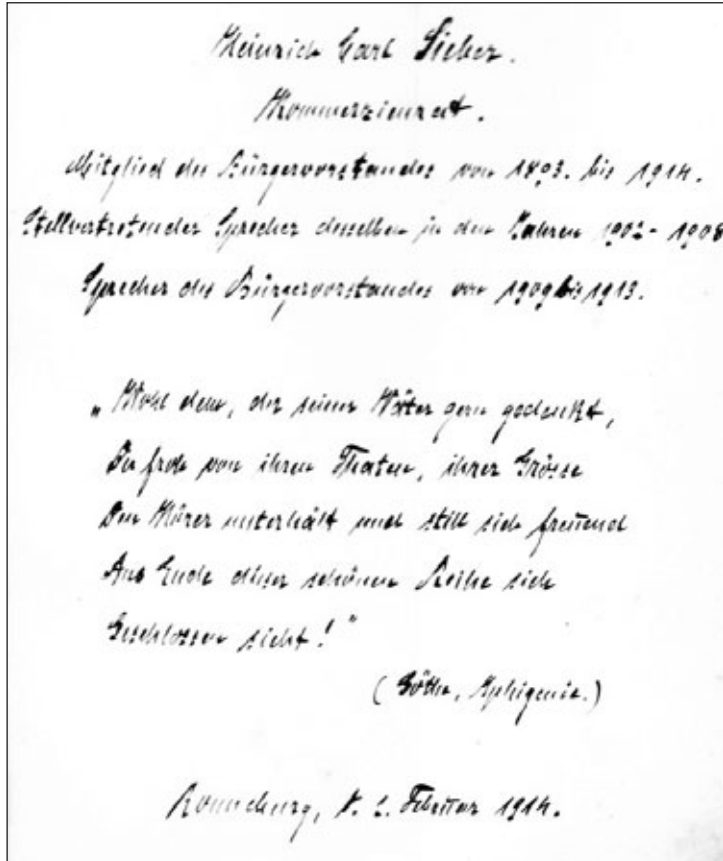 Heinrich Carl Sieber.
Kommerzienrat.
Mitglied des Bürgervorstandes von 1893. bis 1914.
Stellvertretender Sprecher desselben in den Jahren 1902 - 1908
Sprecher des Bürgervorstandes von 1909 bis 1913.
„Wohl dem, der seiner Väter gern gedenkt,
Der froh von ihren Thaten, ihrer Grösse
Den Hörer unterhält und still sich freuend
Ans Ende dieser schönen Reihe sich
Geschlossen sieht!"
(Göthe, Iphigenie.)
Ronneburg, Februar 1914.